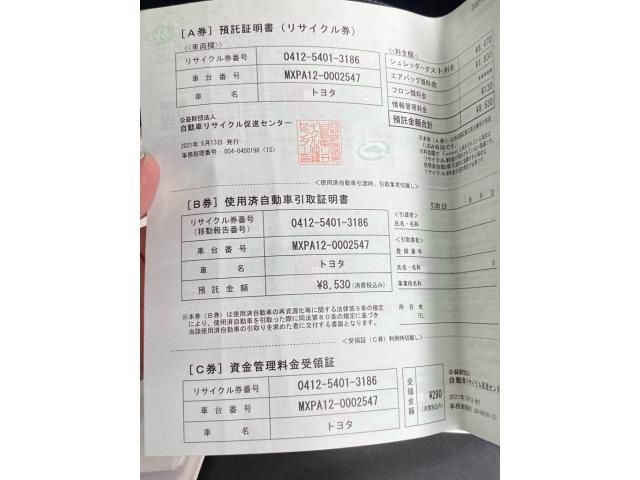 [A券] 預託証明書(リサイクル券)
<車両欄>
リサイクル券番号 0412-5401-3186
車台番号 MXPA12-0002547
車名 トヨタ
<料金欄>
シュレッダーダスト料金 ¥6,470
エアバッグ類料金 ¥1,930
フロン類料金 *****
情報管理料金 ¥130
預託金額合計 ¥8,530
公益財団法人
自動車リサイクル促進センター
2021年 5月13日 発行
事務処理番号 004-0450198 <1S>
<使用済自動車引渡時、引取業者切離し>
[B券] 使用済自動車引取証明書
リサイクル券番号
(移動報告番号) 0412-5401-3186
車台番号 MXPA12-0002547
車名 トヨタ
預託金額 ¥8,530 (消費税込み)
引取日
年 月 日
<引渡者>
氏名・名称
<引取業者>
登録番号
氏名・名称
事業所名称
所在地
TEL
※本券(B券)は使用済自動車の再資源化等に関する法律第9条の規定
により、使用済自動車を引取った際に同法第80条の規定に基づき
当該使用済自動車の引取りを求めた者に交付する書面となります。
<受領証(C券)利用時切離し>
[C券] 資金管理料金受領証
リサイクル券番号 0412-5401-3186
車台番号 MXPA12-0002547
車名 トヨタ
受領金額
¥290
(消費税込み)
公益財団法人
自動車リサイクル促進センタ